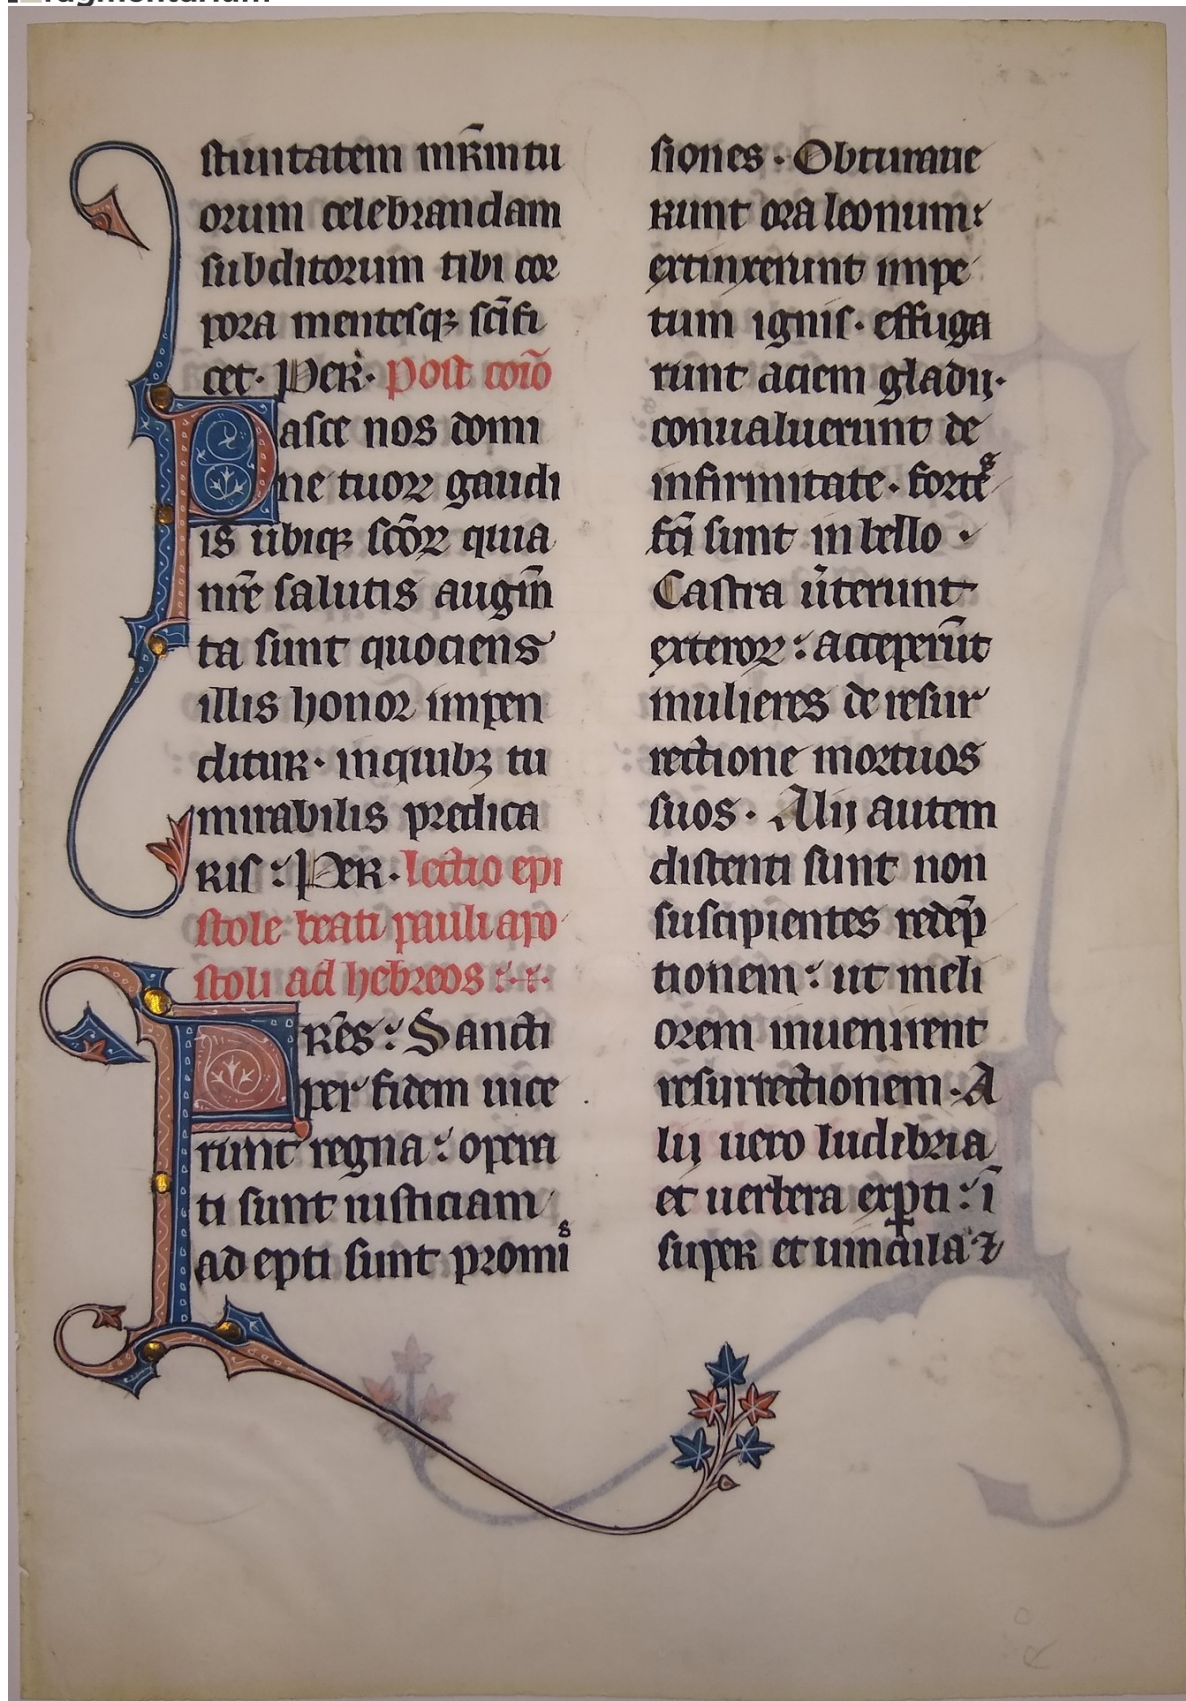 ragmentarium
stiuitatem mr̄mtu
orum celebrandam
subditorum tibi cor
pora mentesqꝫ sc̄ifi
cet· Per̄· Post coīo
Pasce nos domi
ne tuoꝝ gaudi
is ubiqꝫ sc̄oꝝ quia
nr̄e salutis augm̄
ta sunt quociens
illis honor impen
ditur· inquibꝫ tu
mirabilis predica
ris : Per· lectio epi
stole beati pauli apo
stoli ad hebreos :·:·
Fr̄es : Sancti
per fidem uice
runt regna : opera
ti sunt iusticiam
adepti sunt promiˢ
siones · Obturaue
runt ora leonum:
extinxerunt impe
tum ignis· effuga
runt aciem gladij·
conualuerunt de
infirmitate· forteˢ
fc̄i sunt in bello ·
Castra u̾terunt
exteroꝝ : acceperūt
mulieres de resur
rectione mortuos
suos· Alij autem
distenti sunt non
suscipientes redēp
tionem : ut meli
orem inuenirent
resurrectionem· A
lij uero ludibria
et uerbera exꝑti : ī
super et uincula ⁊